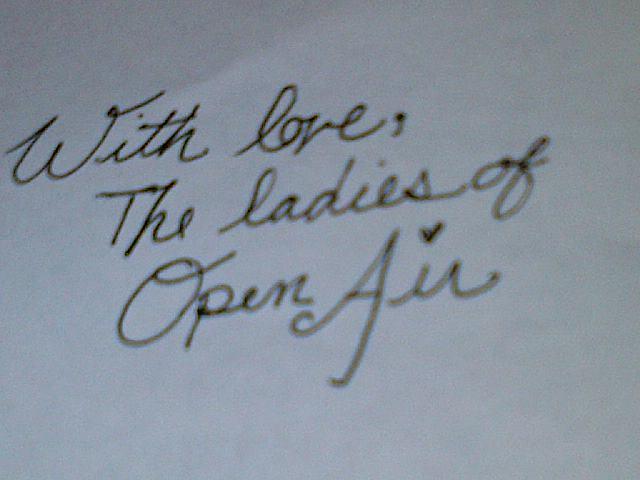 With love,
The ladies of
Open Air